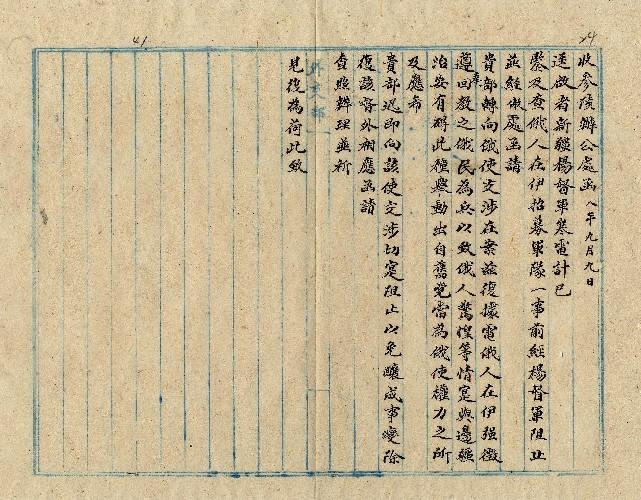 收參陸辦公處函 八年九月九日
逕啟者新疆楊督軍寒電計已
鑒及查俄人在伊招募軍隊一事前經楊督軍阻止
並經俄處函請
貴部轉向俄使交涉在案茲復據電俄人在伊强徵
遵奉回教之俄民為兵以致俄人驚惶等情寔與邊疆
治安有碍此種舉動出自舊党當為俄使權力之所
及應希
貴部迅即向該使交涉切寔阻止以免釀成事變除
復該督外相應函請
查照辦理並祈
見復為荷此致
外交部
41
24